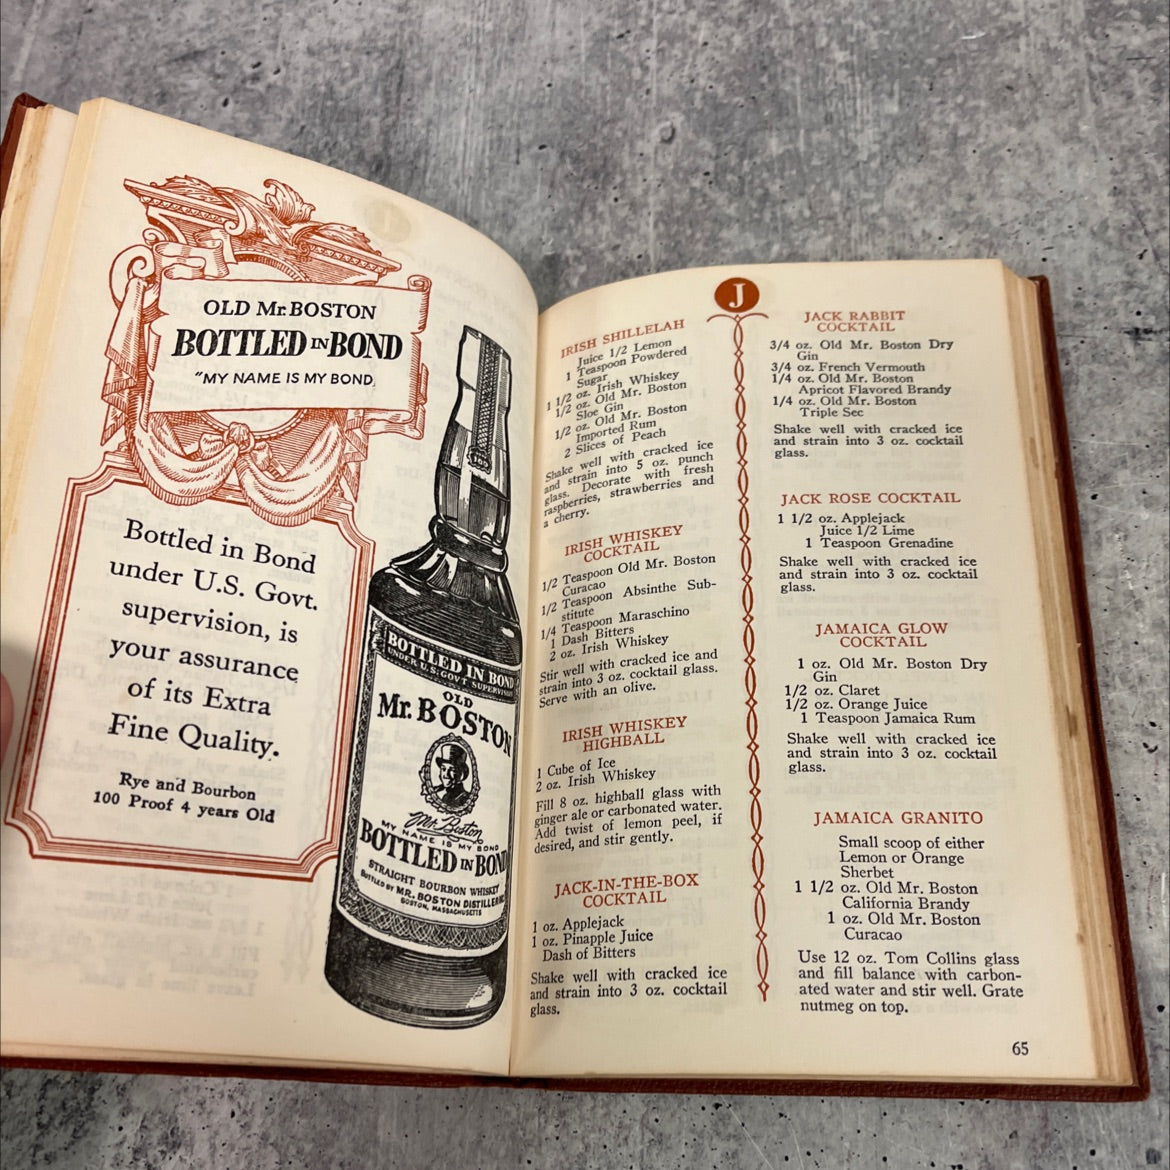 OLD Mr. BOSTON
BOTTLED IN BOND
"MY NAME IS MY BOND
Bottled in Bond
under U.S. Govt.
supervision, is
your assurance
of its Extra
Fine Quality.
Rye and Bourbon
100 Proof 4 years Old
BOTTLED IN BOND
UNDER U.S. GOV'T SUPERVISION
OLD
Mr. BOSTON
Mr. Boston
MY NAME IS MY BOND
BOTTLED IN BOND
STRAIGHT BOURBON WHISKEY
BOTTLED BY MR. BOSTON DISTILLER
BOSTON, MASSACHUSETTS
J
IRISH SHILLELAH
Juice 1/2 Lemon
1 Teaspoon Powdered
Sugar
1 1/2 oz. Irish Whiskey
1/2 oz. Old Mr. Boston
Sloe Gin
1/2 oz. Old Mr. Boston
Imported Rum
2 Slices of Peach
Shake well with cracked ice
and strain into 5 oz. punch
glass. Decorate with fresh
raspberries, strawberries and
a cherry.
IRISH WHISKEY
COCKTAIL
1/2 Teaspoon Old Mr. Boston
Curacao
1/2 Teaspoon Absinthe Sub-
stitute
1/4 Teaspoon Maraschino
1 Dash Bitters
2 oz. Irish Whiskey
Stir well with cracked ice and
strain into 3 oz. cocktail glass.
Serve with an olive.
IRISH WHISKEY
HIGHBALL
1 Cube of Ice
2 oz. Irish Whiskey
Fill 8 oz. highball glass with
ginger ale or carbonated water.
Add twist of lemon peel, if
desired, and stir gently.
JACK-IN-THE-BOX
COCKTAIL
1 oz. Applejack
1 oz. Pinapple Juice
Dash of Bitters
Shake well with cracked ice
and strain into 3 oz. cocktail
glass.
JACK RABBIT
COCKTAIL
3/4 oz. Old Mr. Boston Dry
Gin
3/4 oz. French Vermouth
1/4 oz. Old Mr. Boston
Apricot Flavored Brandy
1/4 oz. Old Mr. Boston
Triple Sec
Shake well with cracked ice
and strain into 3 oz. cocktail
glass.
JACK ROSE COCKTAIL
1 1/2 oz. Applejack
Juice 1/2 Lime
1 Teaspoon Grenadine
Shake well with cracked ice
and strain into 3 oz. cocktail
glass.
JAMAICA GLOW
COCKTAIL
1 oz. Old Mr. Boston Dry
Gin
1/2 oz. Claret
1/2 oz. Orange Juice
1 Teaspoon Jamaica Rum
Shake well with cracked ice
and strain into 3 oz. cocktail
glass.
JAMAICA GRANITO
Small scoop of either
Lemon or Orange
Sherbet
1 1/2 oz. Old Mr. Boston
California Brandy
1 oz. Old Mr. Boston
Curacao
Use 12 oz. Tom Collins glass
and fill balance with carbon-
ated water and stir well. Grate
nutmeg on top.
65